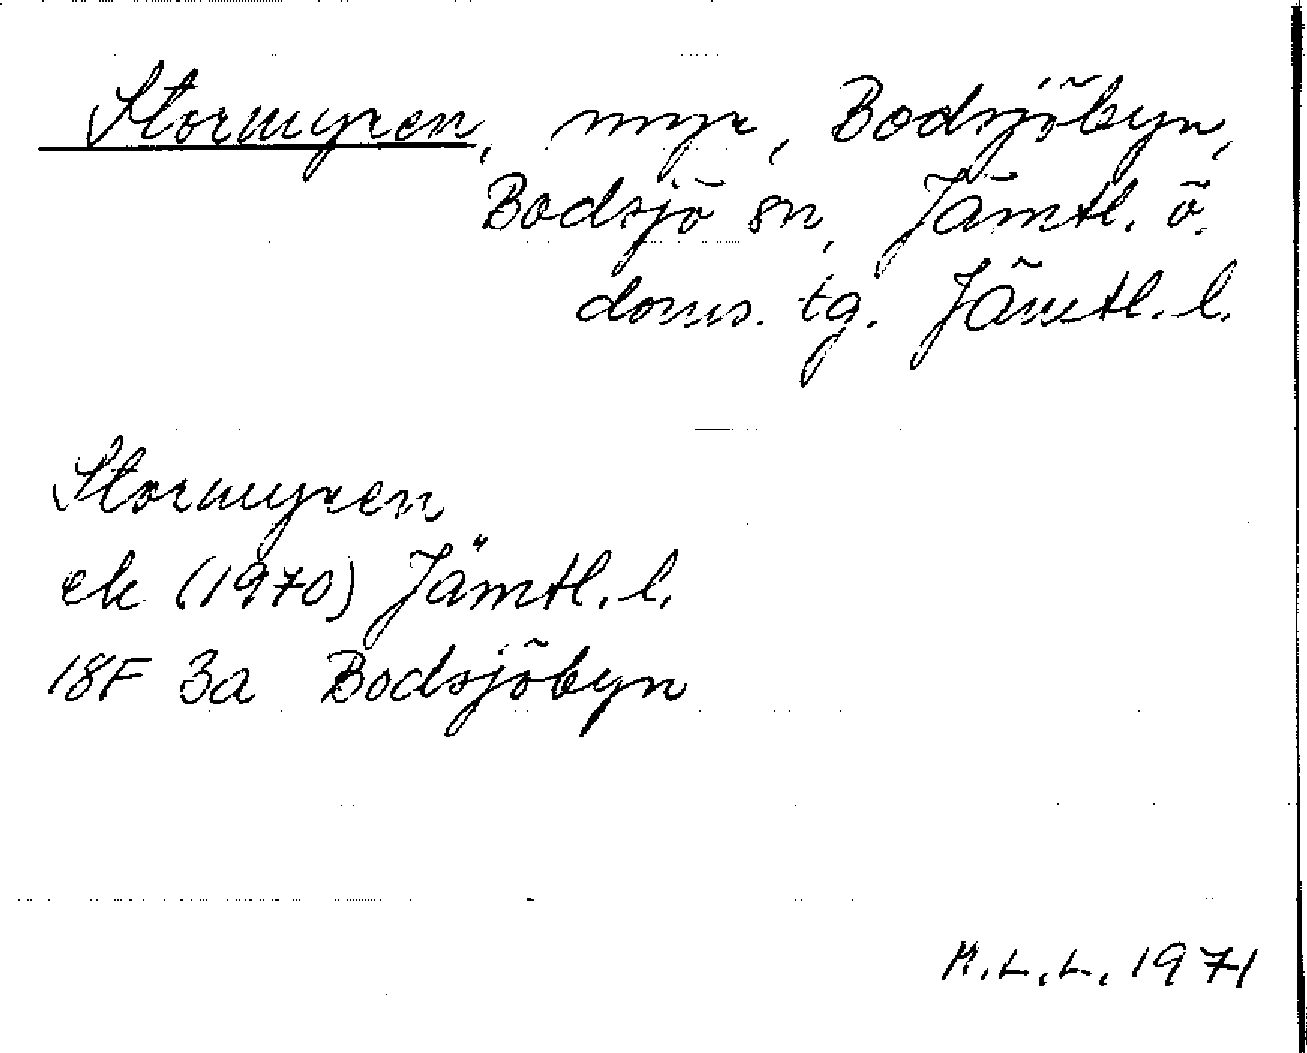 Stormyren, myr, Bodsjöbyn,
Bodsjö sn, Jämtl. ö.
doms. tg. Jämtl. l.
Stormyren
ek (1970) Jämtl. l.
18F 3a Bodsjöbyn
M.L.L. 1971